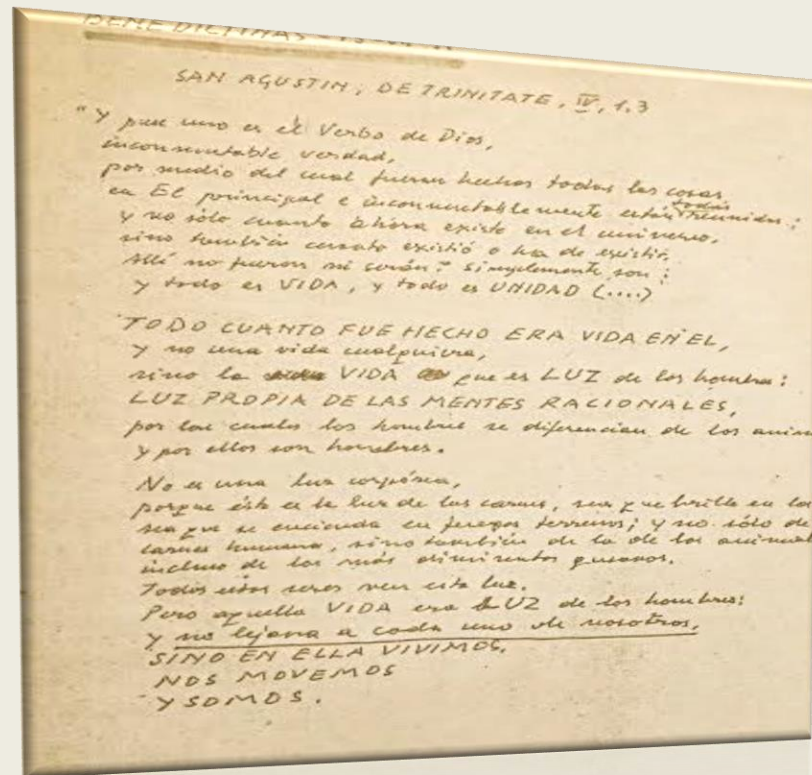 BENEDICTINAS
SAN AGUSTIN, DE TRINITATE, IV, 1.3
"Y pues uno es el Verbo de Dios,
inconmutable verdad,
por medio del cual fueron hechas todas las cosas
en El principal e inconmutablemente están todas reunidas:
y no sólo cuanto ahora existe en el universo,
sino también cuanto existió o ha de existir.
Allí no fueron ni serán: simplemente son:
y todo es VIDA, y todo es UNIDAD (....)
TODO CUANTO FUE HECHO ERA VIDA EN EL,
y no una vida cualquiera,
sino la VIDA que es LUZ de los hombres:
LUZ PROPIA DE LAS MENTES RACIONALES,
por las cuales los hombres se diferencian de los
y por ellas son hombres.
No es una luz corpórea,
porque ésta es la luz de las carnes, sea que brille en los
sea que se encienda en fuegos terrenos; y no sólo de
carnes humana, sino también de la de los
incluso de los más diminutos gusanos.
Todos estos seres ven esta luz.
Pero aquella VIDA era LUZ de los hombres:
y no lejana a cada uno de nosotros,
SINO EN ELLA VIVIMOS,
NOS MOVEMOS
Y SOMOS.